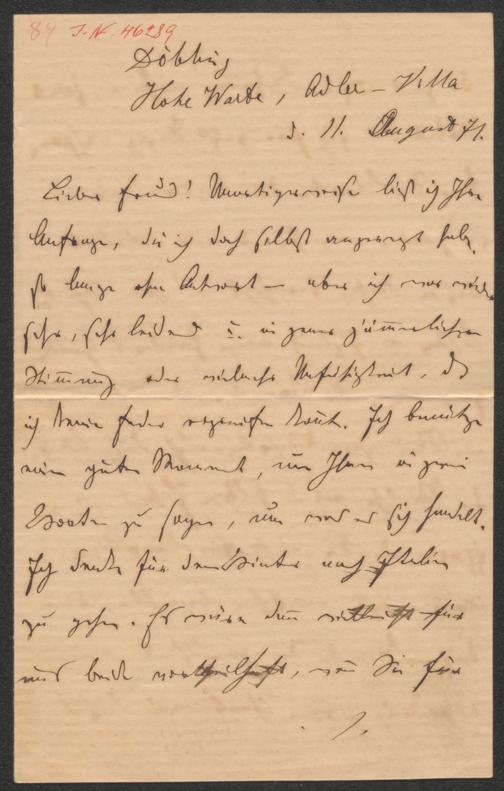 84 J. N. 46289
Döbling
Hohe Warte, Adler-Villa
d. 11. August 71.
Lieber Freund! Unartigerweise ließ ich Ihre
Anfrage, die ich doch selbst angeregt habe,
so lange ohne Antwort – aber ich war wieder
sehr, sehr leidend u. in jener jämmerlichen
Stimmung oder vielmehr Unfähigkeit, da
ich keine Feder ergreifen kann. Ich benütze
einen guten Moment, um Ihnen in zwei
Worten zu sagen, um was es sich handelt.
Ich denke für den Winter nach Italien
zu gehen. Es wäre dann vielleicht für
uns beide vortheilhaft, wenn Sie für